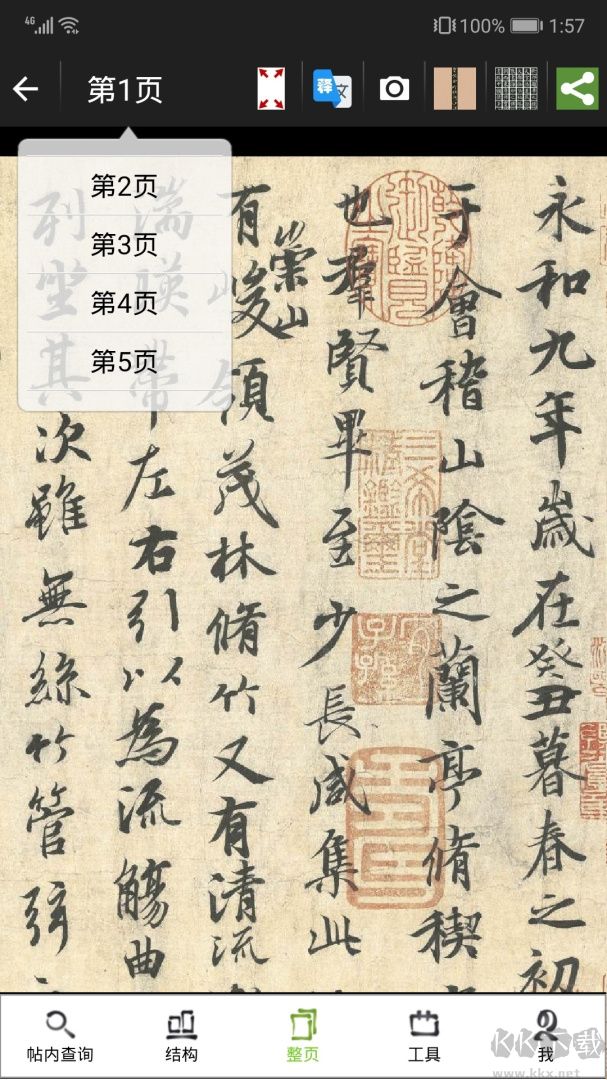 4G 100% 1:57
第1页
释 文
第2页
第3页
第4页
第5页
永和九年歲在癸丑暮春之初
于會稽山陰之蘭亭脩稧
也羣賢畢至少長咸集此
有崇山峻領茂林脩竹又有清流
湍暎帶左右引以為流觴曲
列坐其次雖無絲竹管弦
三希堂精鑑璽
宜子孫
帖内查询
结构
整页
工具
我
KK下载
www.kkx.net